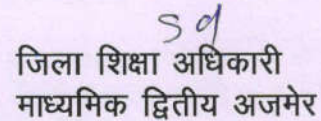 जिला शिक्षा अधिकारी
माध्यमिक द्वितीय अजमेर